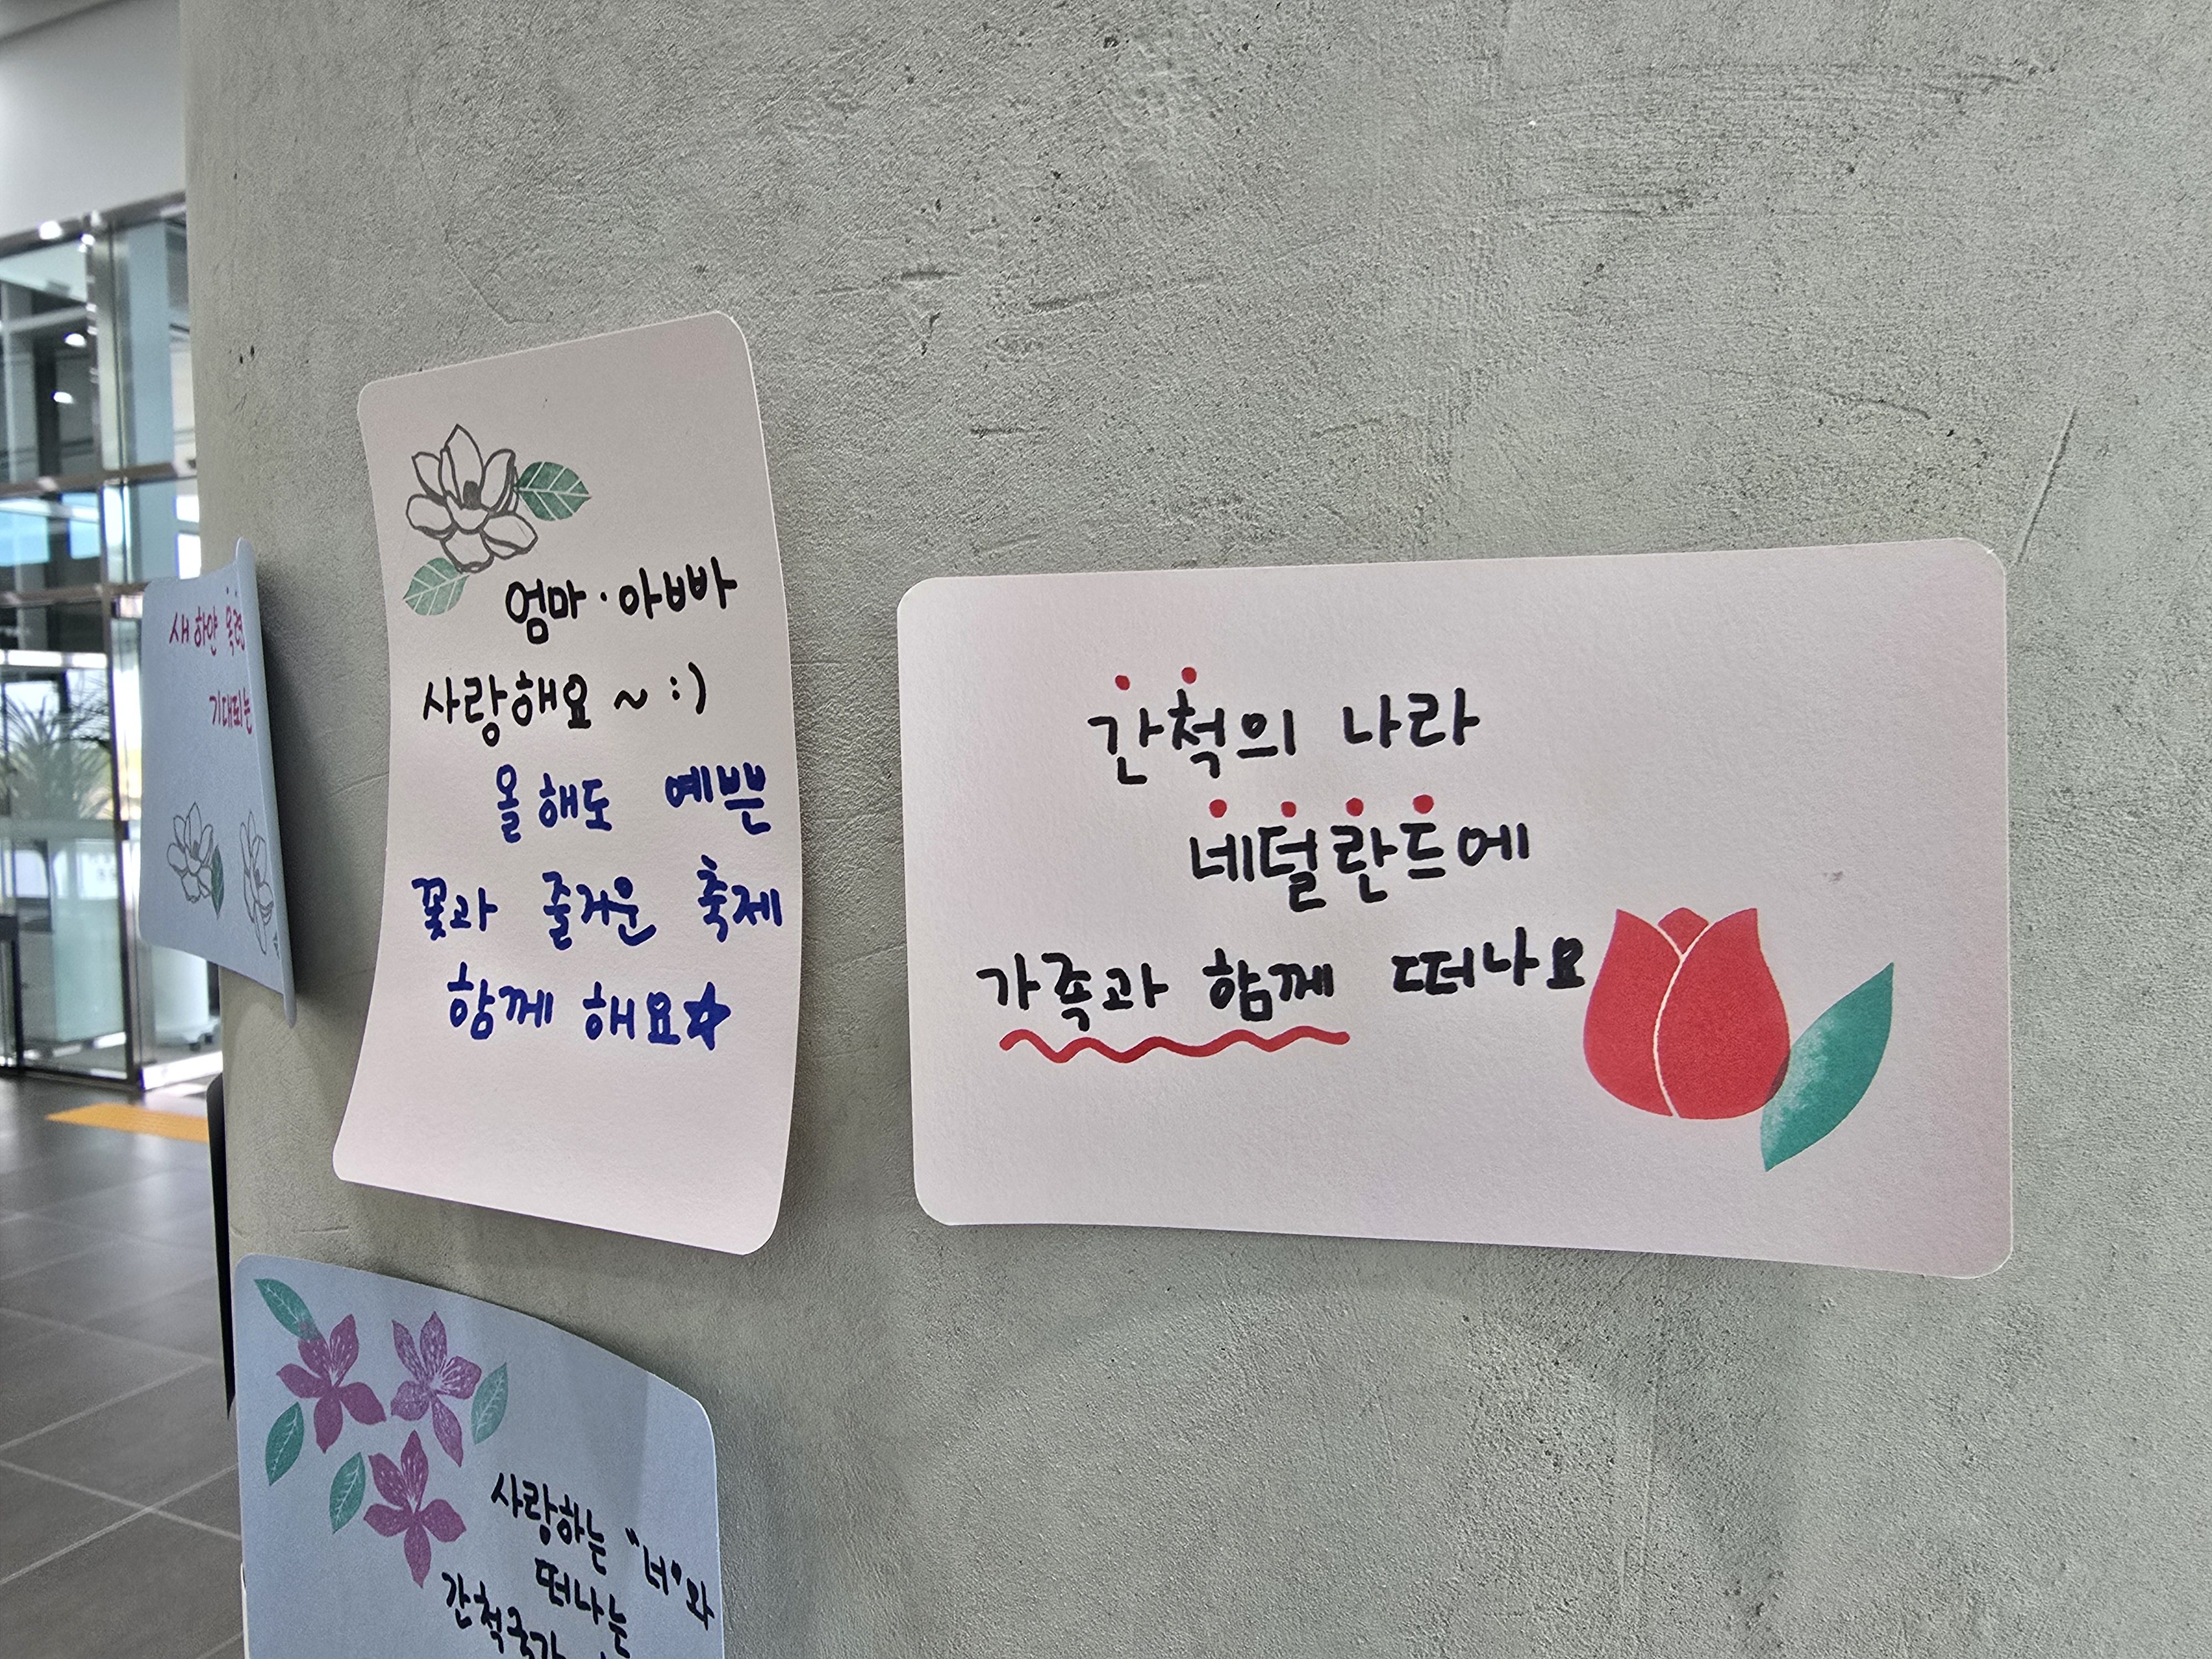 새하얀 목련
기대되는
엄마·아빠
사랑해요~:)
올해도 예쁜
꽃과 즐거운 축제
함께 해요☆
간척의 나라
네덜란드에
가족과 함께 떠나요
사랑하는 "너"와
떠나는
간척국가